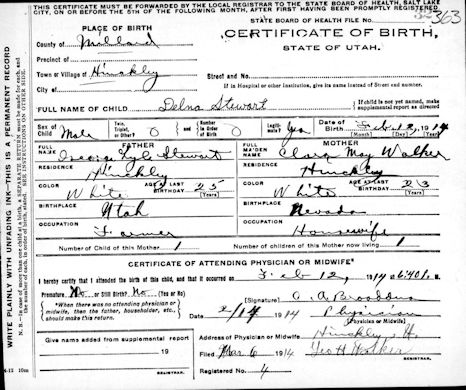 THIS CERTIFICATE MUST BE FORWARDED BY THE LOCAL REGISTRAR TO THE STATE BOARD OF HEALTH, SALT LAKE
CITY, ON OR BEFORE THE 5TH OF THE FOLLOWING MONTH, AFTER FIRST HAVING BEEN PROMPTLY REGISTERED
STATE BOARD OF HEALTH FILE No. 363
PLACE OF BIRTH
CERTIFICATE OF BIRTH,
STATE OF UTAH.
County of Millard
Precinct of
Town or Village of Hinckley
Street and No.
City of
If in Hospital or other institution, give its name instead of Street and number.
FULL NAME OF CHILD Delna Stewart
If child is not yet named, make supplemental report as directed
Sex of Child Male
Twin, Triplet, or Other? 0 and Number in Order of Birth 0
Legitimate? Yes
Date of Birth Feb 12, 1914
(Month) (Day) (Year)
FATHER
MOTHER
FULL NAME George Lyle Stewart
FULL MAIDEN NAME Clara May Walker
RESIDENCE Hinckley
RESIDENCE Hinckley
COLOR White AGE AT LAST BIRTHDAY 25 (Years)
COLOR White AGE AT LAST BIRTHDAY 23 (Years)
BIRTHPLACE Utah
BIRTHPLACE Nevada
OCCUPATION Farmer
OCCUPATION Housewife
Number of Child of this Mother 1
Number of children of this Mother now living 1
CERTIFICATE OF ATTENDING PHYSICIAN OR MIDWIFE*
I hereby certify that I attended the birth of this child, and that it occurred on Feb 12, 1914
Premature No or Still Birth? No (Yes or No)
*When there was no attending physician or midwife, then the father, householder, etc., should make this return.
(Signature) A Broaddus
Date 2/14 1914
Physician
(Physician or Midwife)
Address of Physician or Midwife Hinckley
Given name added from supplemental report
19
Filed Mar 6 1914 Scott Walker
REGISTRAR.
REGISTRAR.
No. 4
WRITE PLAINLY WITH UNFADING INK—THIS IS A PERMANENT RECORD
N. B.—In case of more than one child at a birth, a SEPARATE RETURN must be made for each, and the number of each, in order of birth, stated. SEE INSTRUCTIONS ON OTHER SIDE.